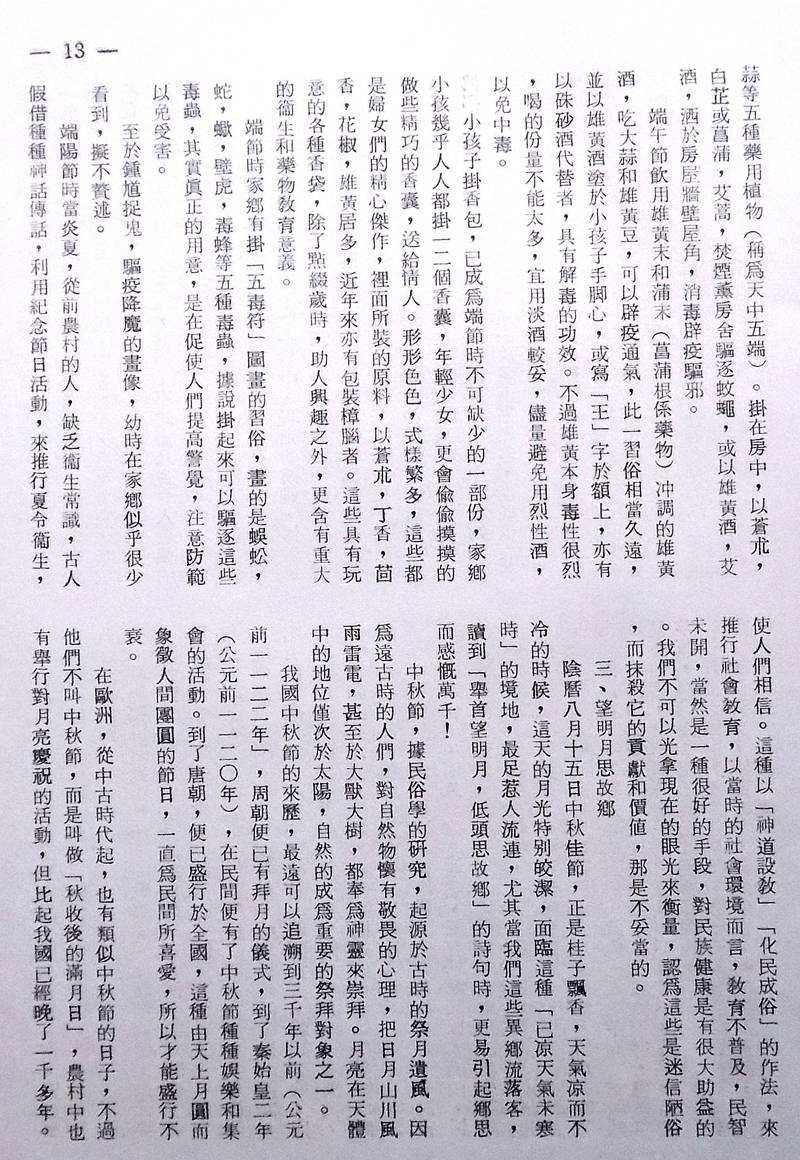 — 13 —
蒜等五種藥用植物（稱爲天中五端）。掛在房中，以蒼朮，
白芷或菖浦，艾蒿，焚煙薰房舍驅逐蚊蠅，或以雄黃酒，艾
酒，洒於房屋牆壁屋角，消毒辟疫驅邪。
端午節飲用雄黃末和蒲末（菖蒲根係藥物）冲調的雄黃
酒，吃大蒜和雄黃豆，可以辟疫通氣，此一習俗相當久遠，
並以雄黃酒塗於小孩子手脚心，或寫「王」字於額上，亦有
以硃砂酒代替者，具有解毒的功效。不過雄黃本身毒性很烈
，喝的份量不能太多，宜用淡酒較妥，儘量避免用烈性酒，
以免中毒。
小孩子掛香包，已成爲端節時不可缺少的一部份，家鄉
小孩幾乎人人都掛一二個香囊，年輕少女，更會偷偷摸摸的
做些精巧的香囊，送給情人。形形色色，式樣繁多，這些都
是婦女們的精心傑作，裡面所裝的原料，以蒼朮，丁香，茴
香，花椒，雄黃居多，近年來亦有包裝樟腦者。這些具有玩
意的各種香袋，除了點綴歲時，助人興趣之外，更含有重大
的衞生和藥物敎育意義。
端節時家鄉有掛「五毒符」圖畫的習俗，畫的是蜈蚣，
蛇，蠍，壁虎，毒蜂等五種毒蟲，據說掛起來可以驅逐這些
毒蟲，其實眞正的用意，是在促使人們提高警覺，注意防範
以免受害。
至於鍾馗捉鬼，驅疫降魔的畫像，幼時在家鄉似乎很少
看到，擬不贅述。
端陽節時當炎夏，從前農村的人，缺乏衞生常識，古人
假借種種神話傳話，利用紀念節日活動，來推行夏令衞生，
使人們相信。這種以「神道設敎」「化民成俗」的作法，來
推行社會敎育，以當時的社會環境而言，敎育不普及，民智
未開，當然是一種很好的手段，對民族健康是有很大助益的
。我們不可以光拿現在的眼光來衡量，認爲這些是迷信陋俗
，而抹殺它的貢獻和價值，那是不妥當的。
三、望明月思故鄉
陰曆八月十五日中秋佳節，正是桂子飄香，天氣凉而不
冷的時候，這天的月光特別皎潔，面臨這種「已凉天氣未寒
時」的境地，最足惹人流連，尤其當我們這些異鄉流落客，
讀到「舉首望明月，低頭思故鄉」的詩句時，更易引起鄉思
而感慨萬千！
中秋節，據民俗學的硏究，起源於古時的祭月遺風。因
爲遠古時的人們，對自然物懷有敬畏的心理，把日月山川風
雨雷電，甚至於大獸大樹，都奉爲神靈來崇拜。月亮在天體
中的地位僅次於太陽，自然的成爲重要的祭拜對象之一。
我國中秋節的來歷，最遠可以追溯到三千年以前（公元
前一一二二年），周朝便已有拜月的儀式，到了秦始皇二年
（公元前一一二〇年），在民間便有了中秋節種種娛樂和集
會的活動。到了唐朝，便已盛行於全國，這種由天上月圓而
象徵人間團圓的節日，一直爲民間所喜愛，所以才能盛行不
衰。
在歐洲，從中古時代起，也有類似中秋節的日子，不過
他們不叫中秋節，而是叫做「秋收後的滿月日」，農村中也
有舉行對月亮慶祝的活動，但比起我國已經晚了一千多年。